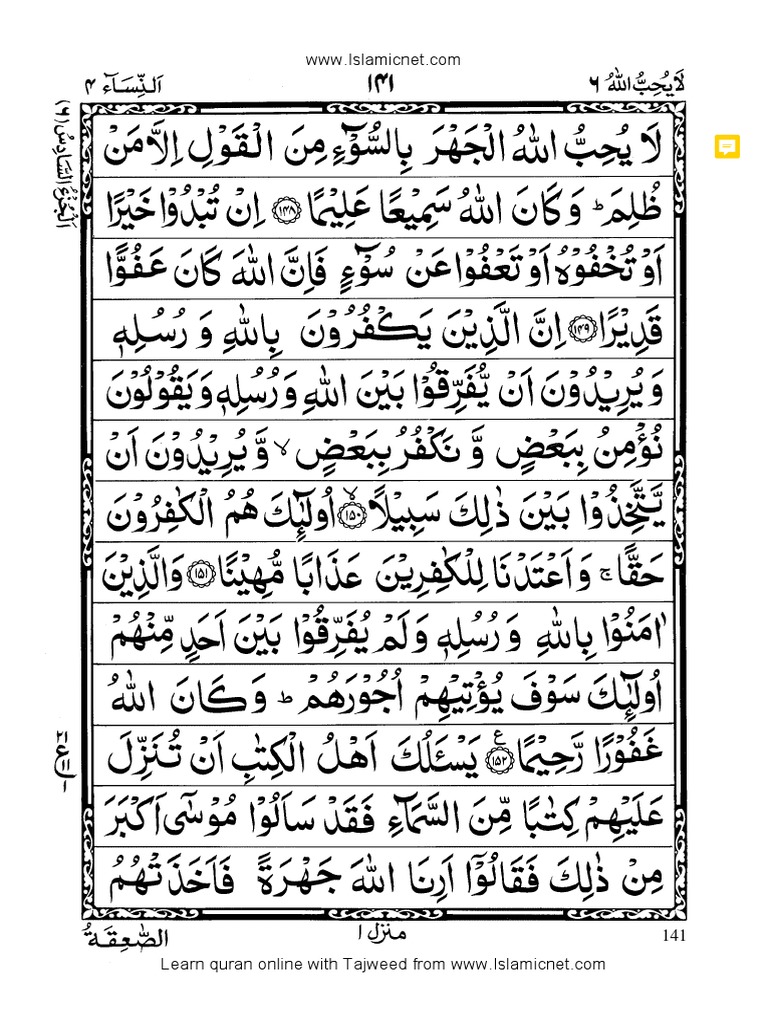 www.Islamicnet.com
لَا يُحِبُّ اللّٰهُ ٦ ١٤١ اَلنِّسَآء ٤
اَلْجُزْءُ السَّادِسُ (٦)
لَا يُحِبُّ اللّٰهُ الْجَهْرَ بِالسُّوْٓءِ مِنَ الْقَوْلِ اِلَّا مَنْ
ظُلِمَ ؕ وَ كَانَ اللّٰهُ سَمِيْعًا عَلِيْمًا ﴿۱۴۸﴾ اِنْ تُبْدُوْا خَيْرًا
اَوْ تُخْفُوْهُ اَوْ تَعْفُوْا عَنْ سُوْٓءٍ فَاِنَّ اللّٰهَ كَانَ عَفُوًّا
قَدِيْرًا ﴿۱۴۹﴾ اِنَّ الَّذِيْنَ يَكْفُرُوْنَ بِاللّٰهِ وَ رُسُلِهٖ
وَ يُرِيْدُوْنَ اَنْ يُّفَرِّقُوْا بَيْنَ اللّٰهِ وَ رُسُلِهٖ وَ يَقُوْلُوْنَ
نُؤْمِنُ بِبَعْضٍ وَّ نَكْفُرُ بِبَعْضٍ ۙ وَّ يُرِيْدُوْنَ اَنْ
يَّتَّخِذُوْا بَيْنَ ذٰلِكَ سَبِيْلًا ﴿۱۵۰﴾ۙ اُولٰٓئِكَ هُمُ الْكٰفِرُوْنَ
حَقًّا ۚ وَ اَعْتَدْنَا لِلْكٰفِرِيْنَ عَذَابًا مُّهِيْنًا ﴿۱۵۱﴾ وَ الَّذِيْنَ
اٰمَنُوْا بِاللّٰهِ وَ رُسُلِهٖ وَ لَمْ يُفَرِّقُوْا بَيْنَ اَحَدٍ مِّنْهُمْ
اُولٰٓئِكَ سَوْفَ يُؤْتِيْهِمْ اُجُوْرَهُمْ ؕ وَ كَانَ اللّٰهُ
غَفُوْرًا رَّحِيْمًا ﴿۱۵۲﴾ع يَسْـَٔلُكَ اَهْلُ الْكِتٰبِ اَنْ تُنَزِّلَ
عَلَيْهِمْ كِتٰبًا مِّنَ السَّمَآءِ فَقَدْ سَاَلُوْا مُوْسٰٓى اَكْبَرَ
مِنْ ذٰلِكَ فَقَالُوْٓا اَرِنَا اللّٰهَ جَهْرَةً فَاَخَذَتْهُمُ
141 منزل ١ الصّٰعِقَةُ
Learn quran online with Tajweed from www.Islamicnet.com